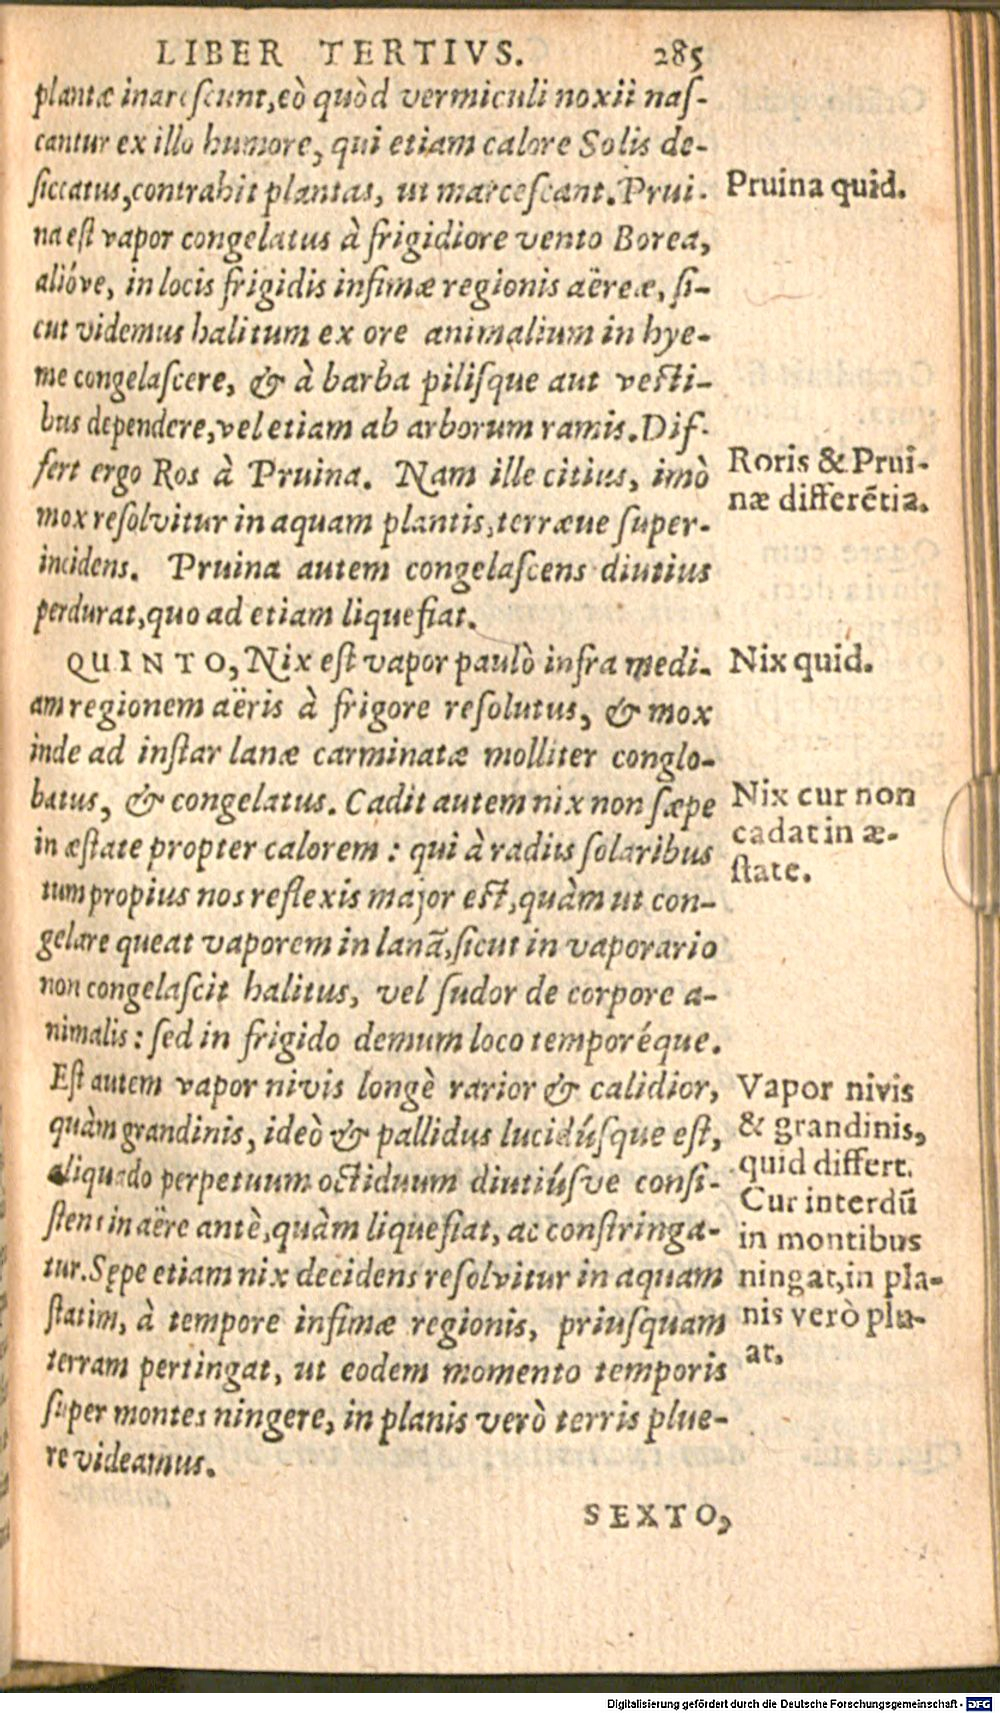 LIBER TERTIVS. 285
plantæ inareſcunt, eò quòd vermiculi noxii naſ-
cantur ex illo humore, qui etiam calore Solis de-
ſiccatus, contrahit plantas, ut marceſcant. Prui-
na eſt vapor congelatus à frigidiore vento Borea,
alióve, in locis frigidis infimæ regionis aëreæ, ſi-
cut videmus halitum ex ore animalium in hye-
me congelaſcere, & à barba piliſque aut veſti-
bus dependere, vel etiam ab arborum ramis. Dif-
fert ergo Ros à Pruina. Nam ille citius, imò
mox reſolvitur in aquam plantis, terræue ſuper-
incidens. Pruina autem congelaſcens diutius
perdurat, quo ad etiam liquefiat.
QUINTO, Nix eſt vapor paulò infra medi-
am regionem aëris à frigore reſolutus, & mox
inde ad inſtar lanæ carminatæ molliter conglo-
batus, & congelatus. Cadit autem nix non ſæpe
in æſtate propter calorem : qui à radiis ſolaribus
tum propius nos reflexis major eſt, quàm ut con-
gelare queat vaporem in lanā, ſicut in vaporario
non congelaſcit halitus, vel ſudor de corpore a-
nimalis : ſed in frigido demum loco temporéque.
Eſt autem vapor nivis longè rarior & calidior,
quàm grandinis, ideò & pallidus lucidúſque eſt,
aliquādo perpetuum octiduum diutiúſve conſi-
ſtens in aëre antè, quàm liquefiat, ac conſtringa-
tur. Sępe etiam nix decidens reſolvitur in aquam
ſtatim, à tempore infimæ regionis, priuſquam
terram pertingat, ut eodem momento temporis
ſuper montes ningere, in planis verò terris plue-
re videamus.
SEXTO,
Pruina quid.
Roris & Prui-
næ differētia.
Nix quid.
Nix cur non
cadat in æ-
ſtate.
Vapor nivis
& grandinis,
quid differt.
Cur interdū
in montibus
ningat, in pla-
nis verò plu-
at.
Digitalisierung gefördert durch die Deutsche Forschungsgemeinschaft - DFG